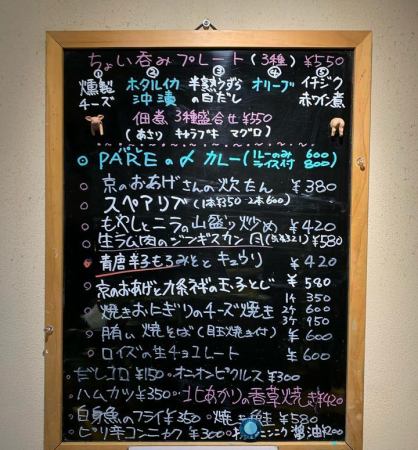 ちょい呑みプレート(3種) ¥550
① ② ③ ④ ⑤
燻製チーズ ホタルイカ沖漬 半熟うずらの白だし オリーブ イチジク赤ワイン煮
佃煮 3種盛合せ ¥550
(あさり キャラブキ マグロ)
PAREの〆カレー(ルーのみ 600 ライス付 800)
京のおあげさんの炊たん ¥380
スペアリブ(1本¥350 2本600)
もやしとニラの山盛り炒め ¥420
生ラム肉のジンギスカン ¥580
青唐辛子もろみとキュウリ ¥420
京のおあげと九条ネギの玉子とじ ¥580
焼きおにぎりのチーズ焼き 1ケ 350 2ケ 600 3ケ 950
賄い焼そば(目玉焼き付) ¥600
ロイズの生チョコレート ¥600
だしコロ¥150 オニオンピクルス¥300
ハムカツ¥350 北あかりの香草焼き¥420
白身魚のフライ¥350 焼き鮭 ¥580
ピリ辛コンニャク ¥300 ニンニク醤油